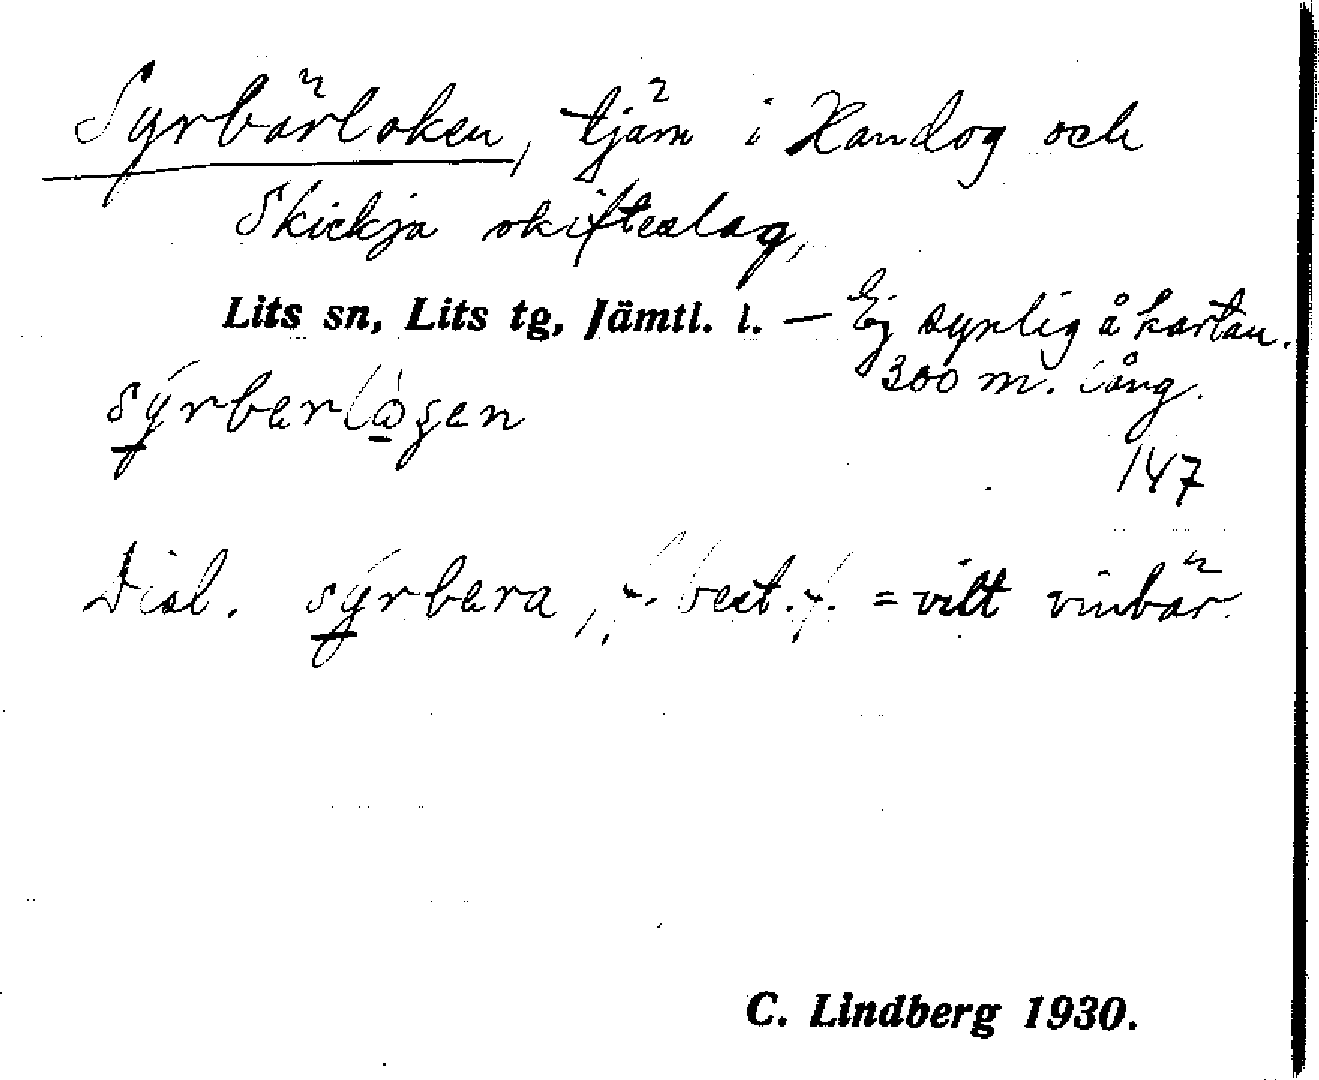 Syrbärloken, tjärn i Handog och
Skickja skifteslag,
Lits sn, Lits tg, Jämtl. l. – Ej synlig å kartan.
300 m. lång.
sýrberlògen
147
Dial. sýrbera, f. best. f. = vilt vinbär.
C. Lindberg 1930.